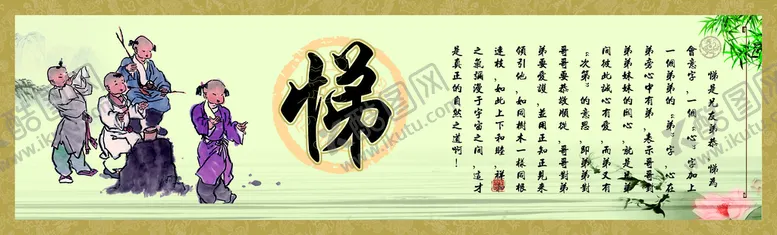 悌
悌是兄友弟恭。悌為
會意字，一個"心"字加上
一個弟弟的"弟"字，心在
弟旁心中有弟，表示哥哥對
弟弟妹妹的關心，就是兄弟
間彼此誠心友愛。而弟又有
"次第"的意思，即弟弟對
哥哥要恭敬順從，哥哥對弟
弟要愛護，並用正知正見來
領引他，如同樹木一樣同根
連枝，如此上下和睦，祥和
之氣彌漫于宇宙之間，這才
是真正的自然之道啊！
www.ikutu.com